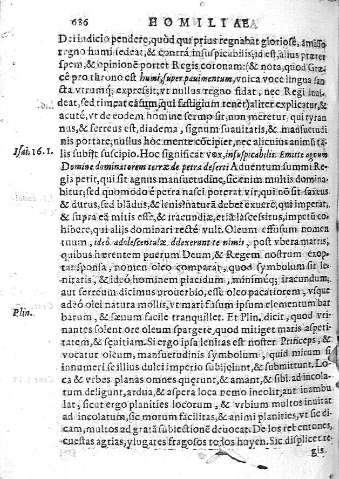 686 HOMILIAE
Dei iudicio pendere, quòd qui prius regnabat gloriosè, amisso
regno humi sedeat, & contrà insuspicabilis, id est, alius præter
spem, & opinionē portet Regis coronam: (& nota, quòd Græ-
cè pro throno est humi, super pauimentum, vnica voce lingua san-
cta vtrumq; expressit, vt nullus regno fidat, nec Regi inui-
deat, sed timeat casum, qui fastigium tenet) aliter explicatur, &
acutè, vt de eodem homine sermo sit, non meretur, qui tyran-
nus, & ferreus est, diadema, signum suauitatis, & mansuetudi-
nis portare, nullus hoc mente cōcipiet, nec alicuius animi ta-
Isai. 16. 1. lis subiit suspicio. Hoc significat vox, insuspicabilis. Emitte agnum
Domine dominatorem terræ de petra deserti. Aduentum summi Re-
gis petit, qui sit agnus mansuetudine, sic enim multis domina-
bitur, sed quomodo è petra nasci poterat vir, qui nō sit saxeus
& durus, sed blādus, & lenis? natura debet exuere, qui imperat,
& supra eā mitis esse, & iracundiæ, etiā lacessitus, impetū co-
hibere, qui alijs dominari rectè vult. Oleum effusum nomen
tuum, ideò adolescentulæ dilexerunt te nimis, post vbera matris,
quibus hærentem puerum Deum, & Regem nostrum exop-
tat sponsa, nomen oleo comparat, quod symbolum sit le-
nitatis, & ideò hominem placidum, minimúq; iracundum,
aut seruum dicimus prouerbio, esse oleo pacatiorem, vsque
adeò olei natura mollis, vt mari fusum ipsum elementum bar
Plin. barum, & sæuum facile tranquillet. Et Plin. dicit, quod vri-
nantes solent ore oleum spargere, quod mitiget maris asperi-
tatem, & sæuitiam. Si ergo ipsa lenitas est noster Princeps, &
vocatur oleum, mansuetudinis symbolum, quid mirum si
innumeri se illius dulci imperio subijciunt, & submittunt. Lo-
ca & vrbes planas omnes quærunt, & amant, & sibi ad incola-
tum deligunt, ardua, & aspera loca nemo incolit, aut inambu
lat, sicut ergo planities locorum, & vrbium multos inuitat
ad incolatum, sic morum facilitas, & animi planities, vt sic di-
cam, multos ad gratā subiectionē deuocat. De los rebentones,
cuestas agrias, y lugares fragosos todos huyen. Sic displicet re-
gis